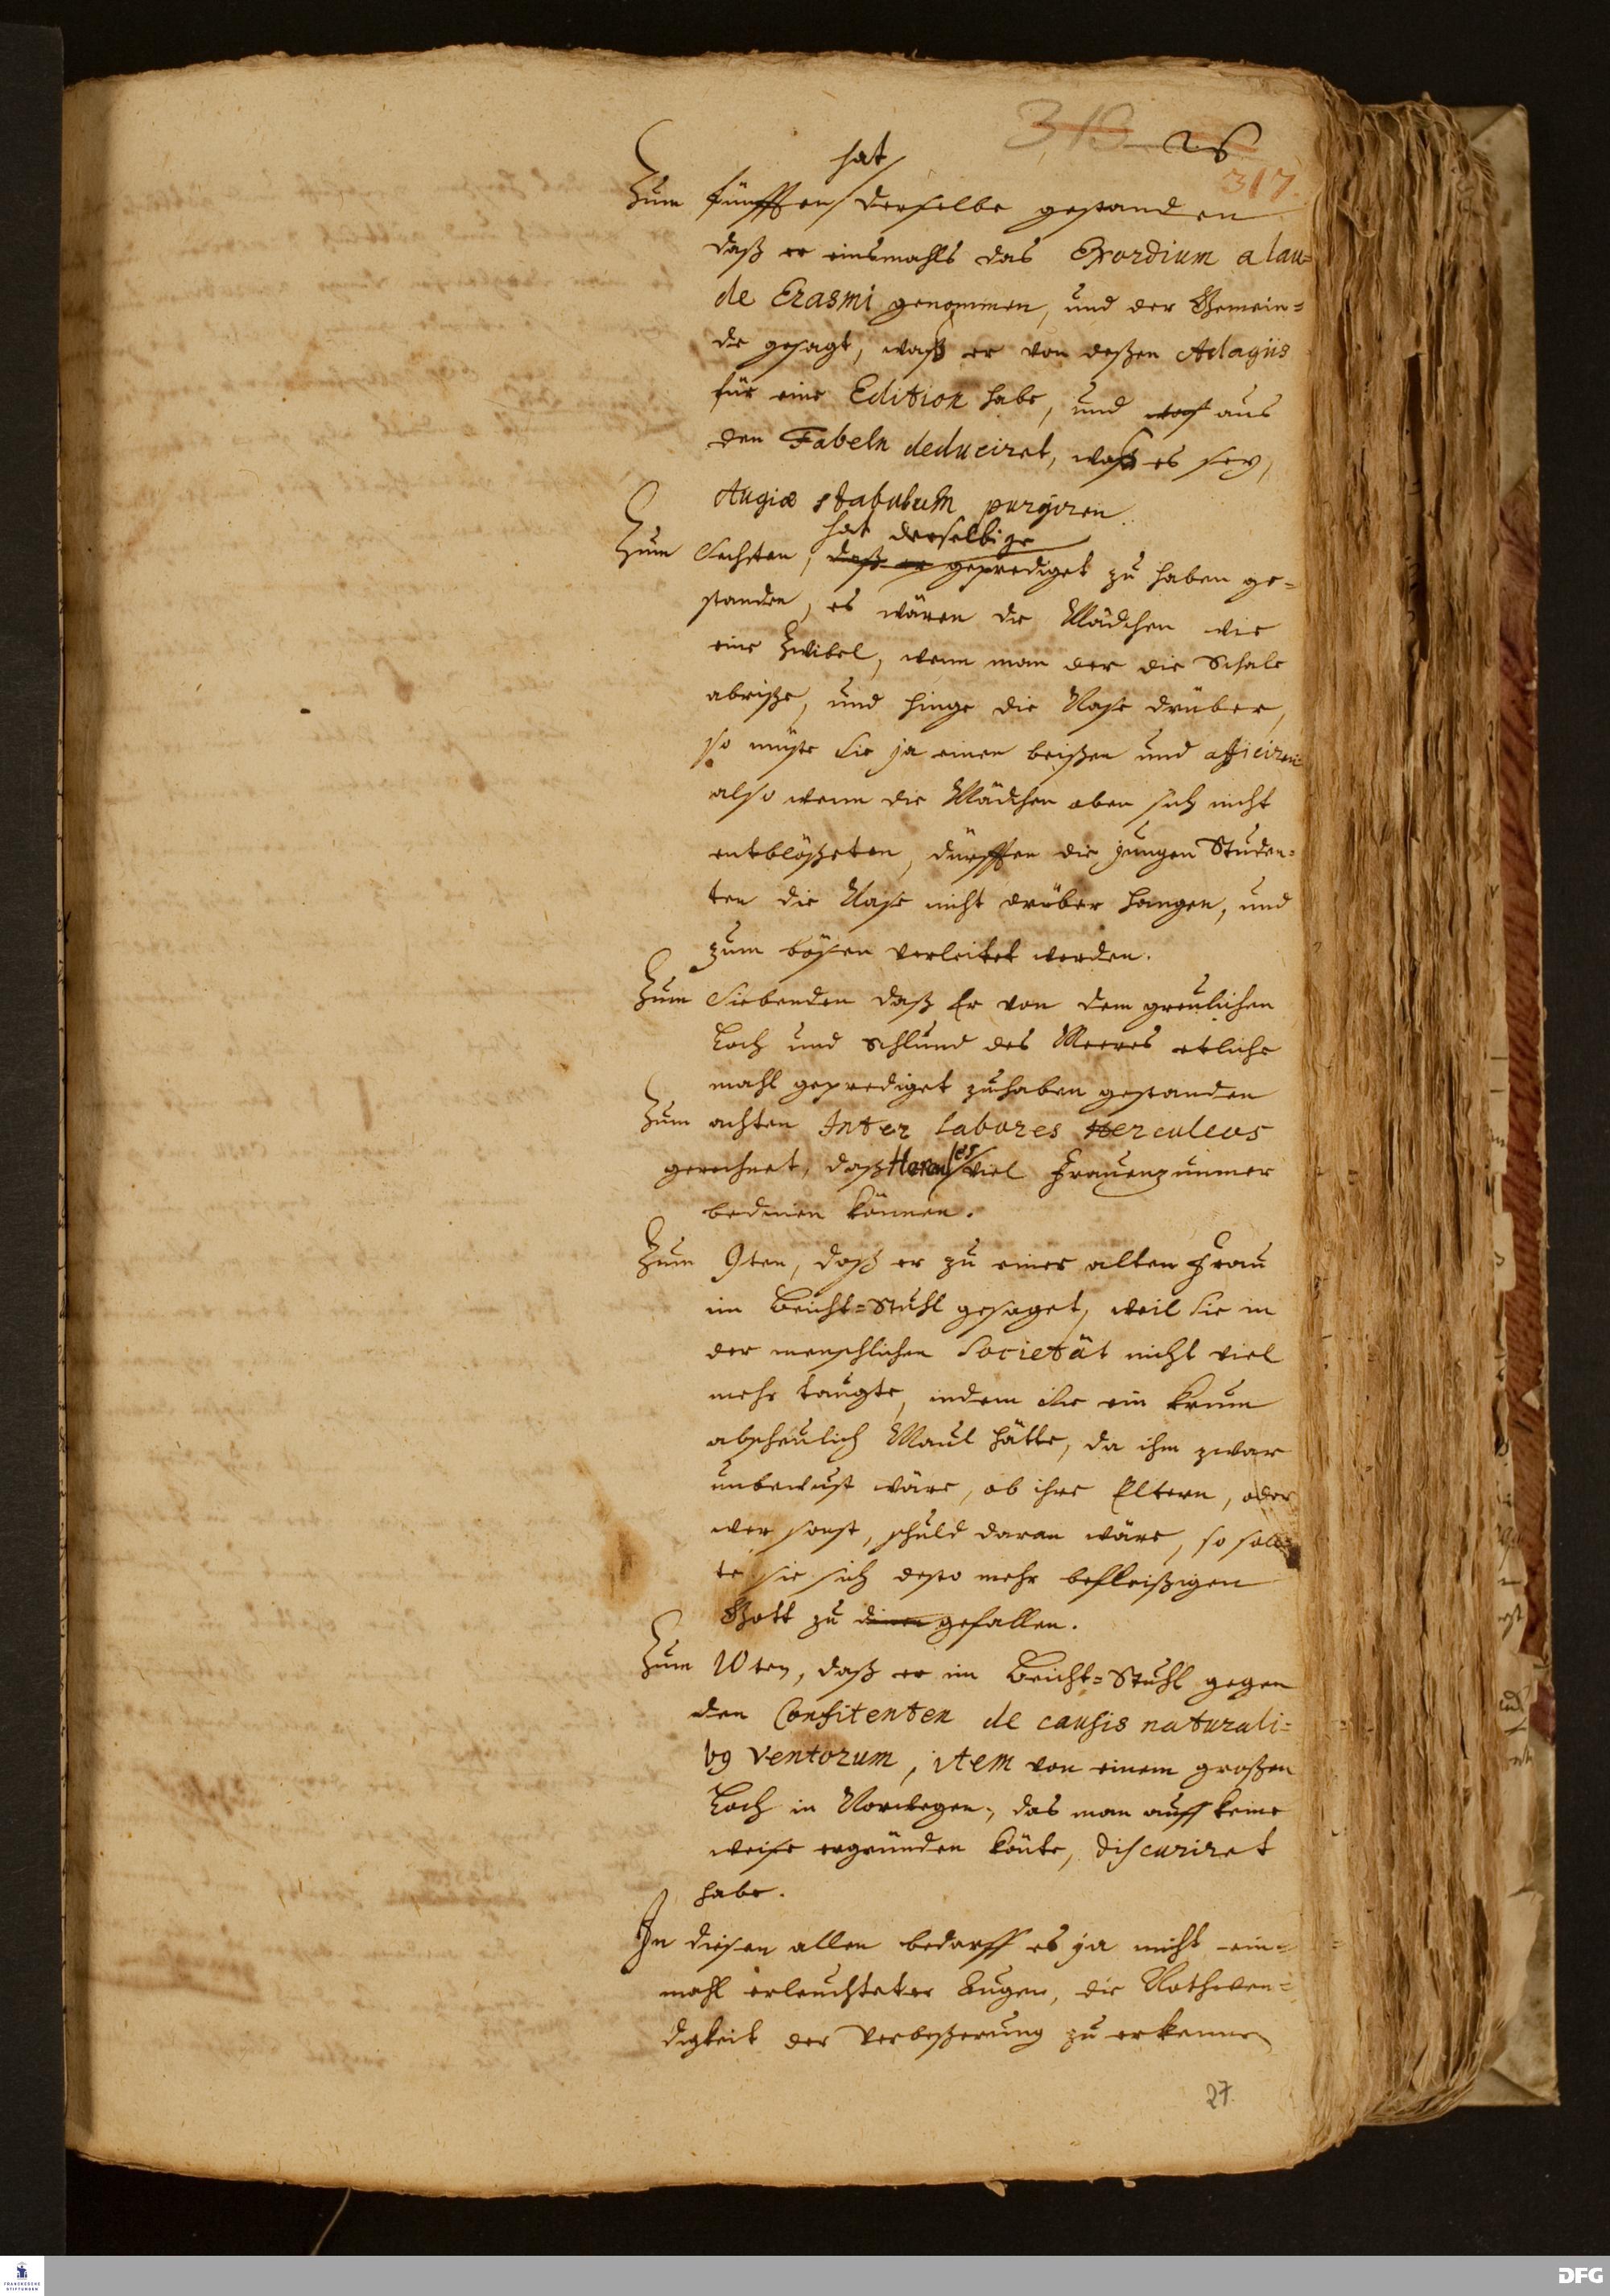 26
317.
hat
Zum fünfften derselbe gestanden
daß er einsmahls das Exordium a lau=
de Erasmi genommen, und der Gemein=
de gesagt, waß er von deßen Adagiis
für eine Edition habe, und aus
den Fabeln deduciret, waß es sey,
Augiæ stabulum purgiren.
hat derselbige
Zum Sechsten, daß er geprediget zu haben ge=
standen, es wären die Mädchen wie
eine Zwibel, wenn man der die Schale
abriße, und hinge die Nase drüber,
so müste sie ja einen beißen und afficiren
also wenn die Mädchen oben sich nicht
entblößeten, dürfften die jungen Studen=
ten die Nase nicht drüber hangen, und
zum bösen verleitet werden.
Zum Siebenden daß Er von dem greulichen
Loch und Schlund des Meeres etliche
mahl geprediget zuhaben gestanden
Zum achten Inter labores Herculeos
gerechnet, daß Hercules viel Frauenzimmer
bedienen können.
Zum 9ten, daß er zu einer alten Frau
im Beicht=Stuhl gesaget, weil sie in
der menschlichen Societät nicht viel
mehr taugte, indem sie ein krum
abscheulich Maul hätte, da ihm zwar
unbewust wäre, ob ihre Eltern, oder
wer sonst, schuld daran wäre, so soll=
te sie sich desto mehr befleißigen
Gott zu dienen gefallen.
Zum 10ten, daß er im Beicht=Stuhl gegen
den Confitenten de causis naturali=
bg ventorum, item von einem großen
Loch in Norwegen, das man auff keine
weise ergründen könte, discuriret
habe.
In diesen allen bedarff es ja nicht ein=
mahl erleuchteter Augen, die Nothwen=
digkeit der Verbeßerung zu erkennen
27.
FRANCKESCHE
STIFTUNGEN
DFG